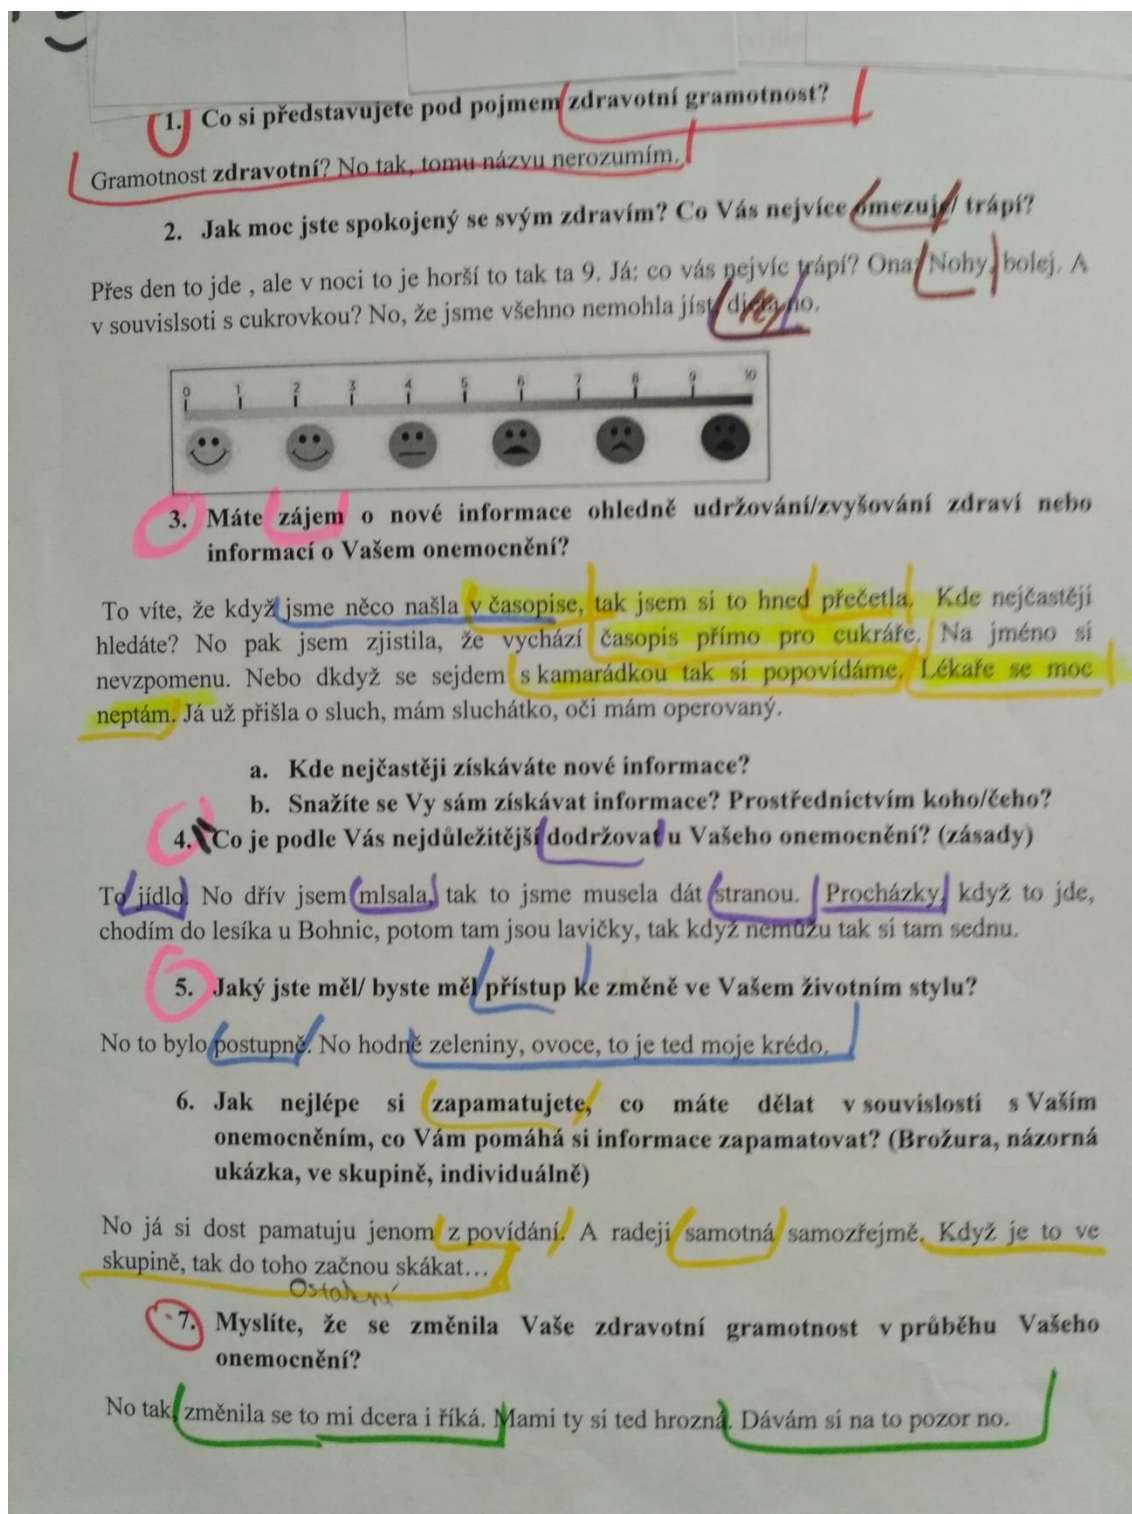 1. Co si představujete pod pojmem zdravotní gramotnost?
Gramotnost zdravotní? No tak, tomu názvu nerozumím.
2. Jak moc jste spokojený se svým zdravím? Co Vás nejvíce omezuje/ trápí?
Přes den to jde , ale v noci to je horší to tak ta 9. Já: co vás nejvíc trápí? Ona: Nohy, bolej. A
v souvislsoti s cukrovkou? No, že jsme všehno nemohla jíst, dieta no.
0 1 2 3 4 5 6 7 8 9 10
3. Máte zájem o nové informace ohledně udržování/zvyšování zdraví nebo
informací o Vašem onemocnění?
To víte, že když jsme něco našla v časopise, tak jsem si to hned přečetla. Kde nejčastěji
hledáte? No pak jsem zjistila, že vychází časopis přímo pro cukráře. Na jméno si
nevzpomenu. Nebo dkdyž se sejdem s kamarádkou tak si popovídáme. Lékaře se moc
neptám. Já už přišla o sluch, mám sluchátko, oči mám operovaný.
a. Kde nejčastěji získáváte nové informace?
b. Snažíte se Vy sám získávat informace? Prostřednictvím koho/čeho?
4. Co je podle Vás nejdůležitější dodržovat u Vašeho onemocnění? (zásady)
To jídlo. No dřív jsem mlsala, tak to jsme musela dát stranou. Procházky, když to jde,
chodím do lesíka u Bohnic, potom tam jsou lavičky, tak když nemůžu tak si tam sednu.
5. Jaký jste měl/ byste měl přístup ke změně ve Vašem životním stylu?
No to bylo postupně. No hodně zeleniny, ovoce, to je ted moje krédo.
6. Jak nejlépe si zapamatujete, co máte dělat v souvislosti s Vaším
onemocněním, co Vám pomáhá si informace zapamatovat? (Brožura, názorná
ukázka, ve skupině, individuálně)
No já si dost pamatuju jenom z povídání. A radeji samotná samozřejmě. Když je to ve
skupině, tak do toho začnou skákat…
Ostatní
7. Myslíte, že se změnila Vaše zdravotní gramotnost v průběhu Vašeho
onemocnění?
No tak, změnila se to mi dcera i říká. Mami ty si ted hrozná. Dávám si na to pozor no.